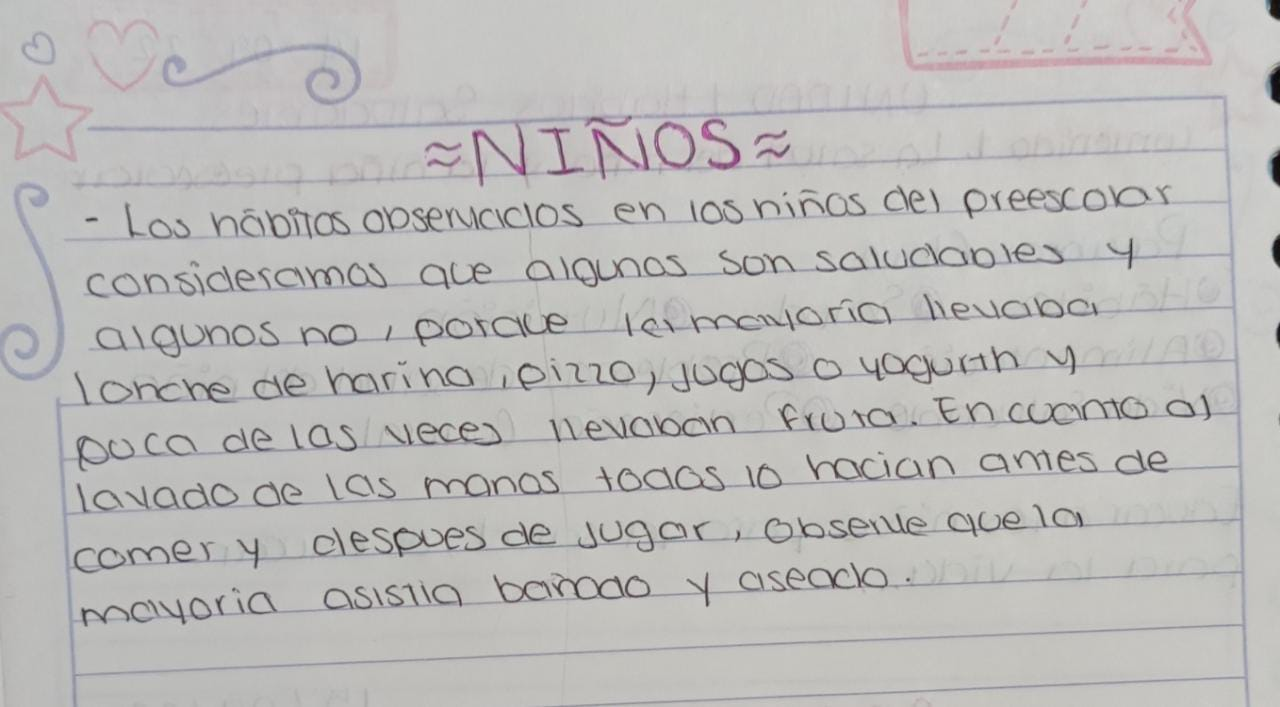 ≈NIÑOS≈
- Los hábitos observados en los niños del preescolar
consideramos que algunos son saludables y
algunos no, porque la mayoría llevaba
lonche de harina, pizza, jugos o yogurth y
poca de las veces llevaban fruta. En cuanto al
lavado de las manos todos lo hacian antes de
comer y despues de jugar, observe que la
mayoria asistia bañado y aseado.